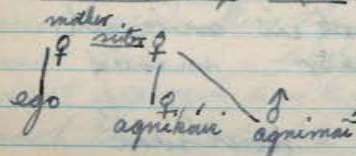 mother
sister
ego
agnikaii
agnimaí